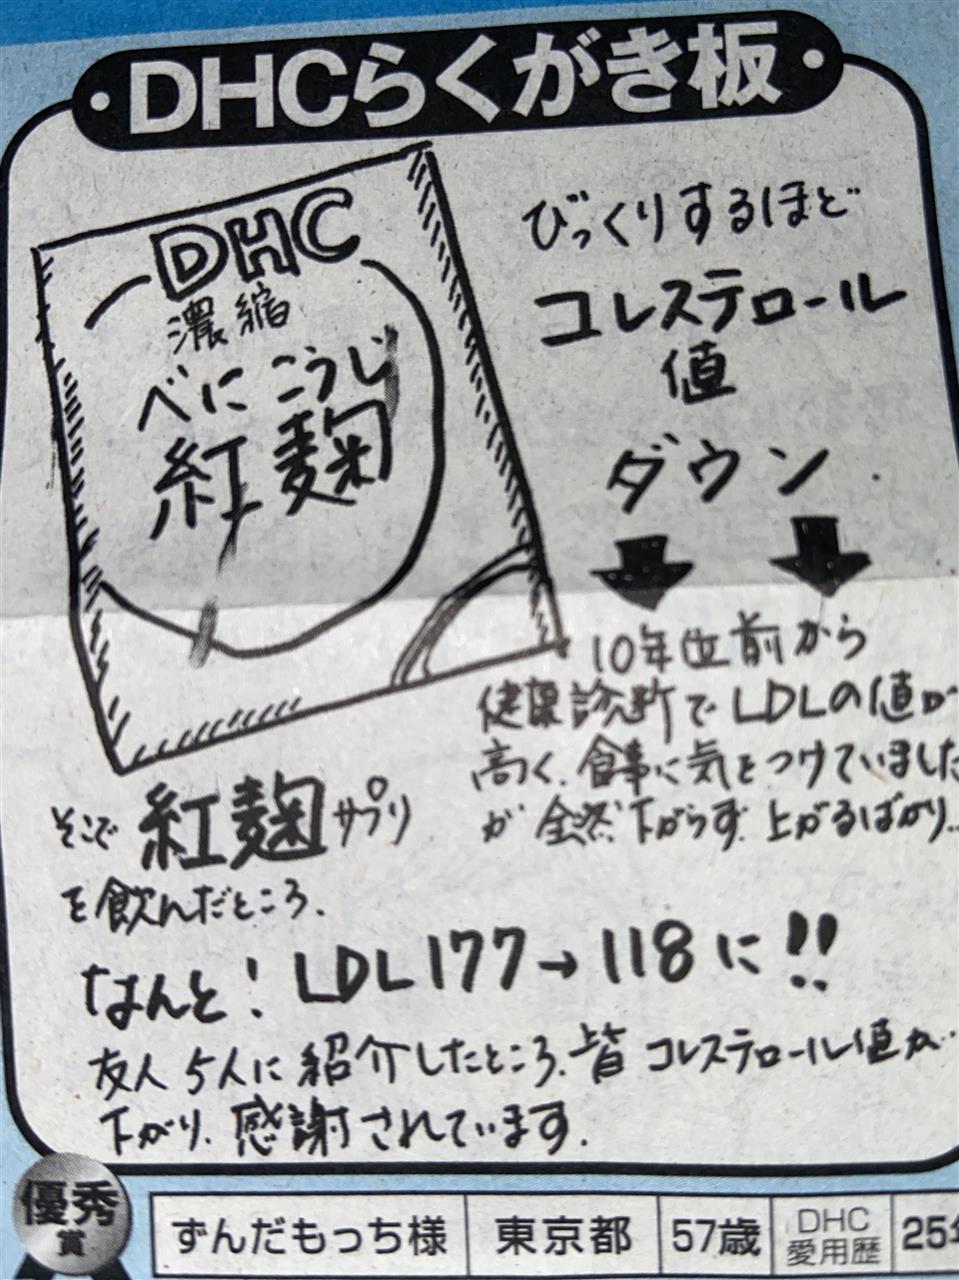 ・DHCらくがき板・
DHC
濃縮
べにこうじ
紅麹
びっくりするほど
コレステロール
値
ダウン
10年位前から
健康診断でLDLの値が
高く、食事に気をつけていました
が全然下がらず、上がるばかり…
そこで紅麹サプリ
を飲んだところ、
なんと!LDL177→118に!!
友人5人に紹介したところ、皆コレステロール値が
下がり、感謝されています。
優秀
賞
ずんだもっち様 東京都 57歳 DHC
愛用歴 25年